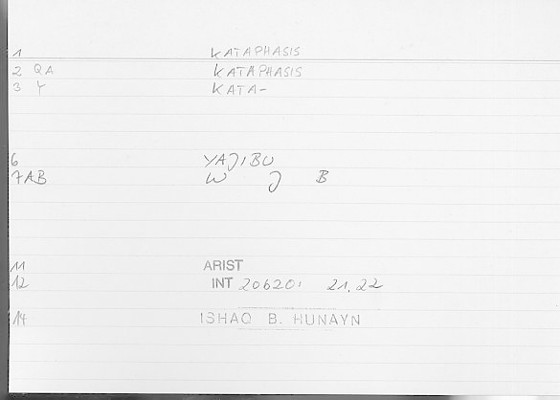 1 KATAPHASIS
2 QA KATAPHASIS
3 Y KATA-
6 YAJIBU
7AB W J B
11 ARIST
12 INT 20b20, 21.22
14 ISHAQ B. HUNAYN